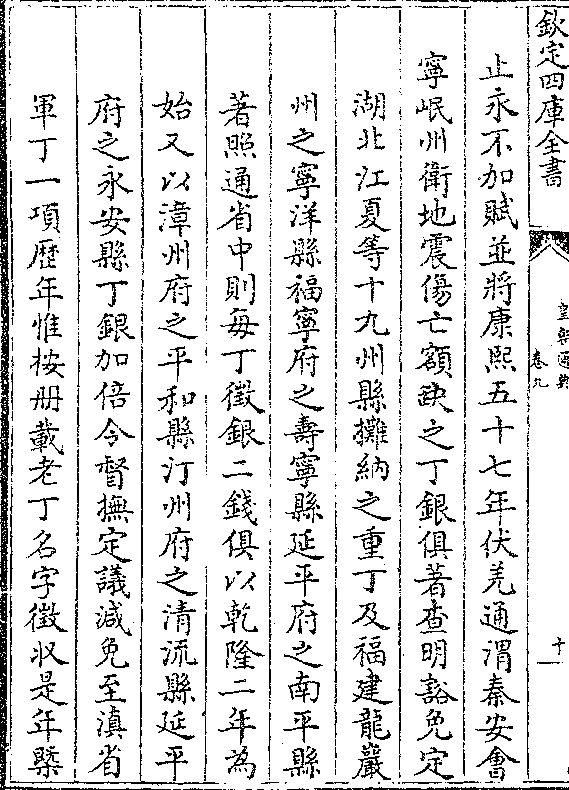 欽定四庫全書
皇朝通典
卷九
十一
止永不加賦並將康熙五十七年伏羌通渭秦安會
寧岷州衛地震傷亡額缺之丁銀俱著查明豁免定
湖北江夏等十九州縣攤納之重丁及福建龍巖
州之寧洋縣福寧府之壽寧縣延平府之南平縣
著照通省中則每丁徵銀二錢俱以乾隆二年為
始又以漳州府之平和縣汀州府之清流縣延平
府之永安縣丁銀加倍令督撫定議減免至滇省
軍丁一項歷年惟按册載老丁名字徵收是年槩